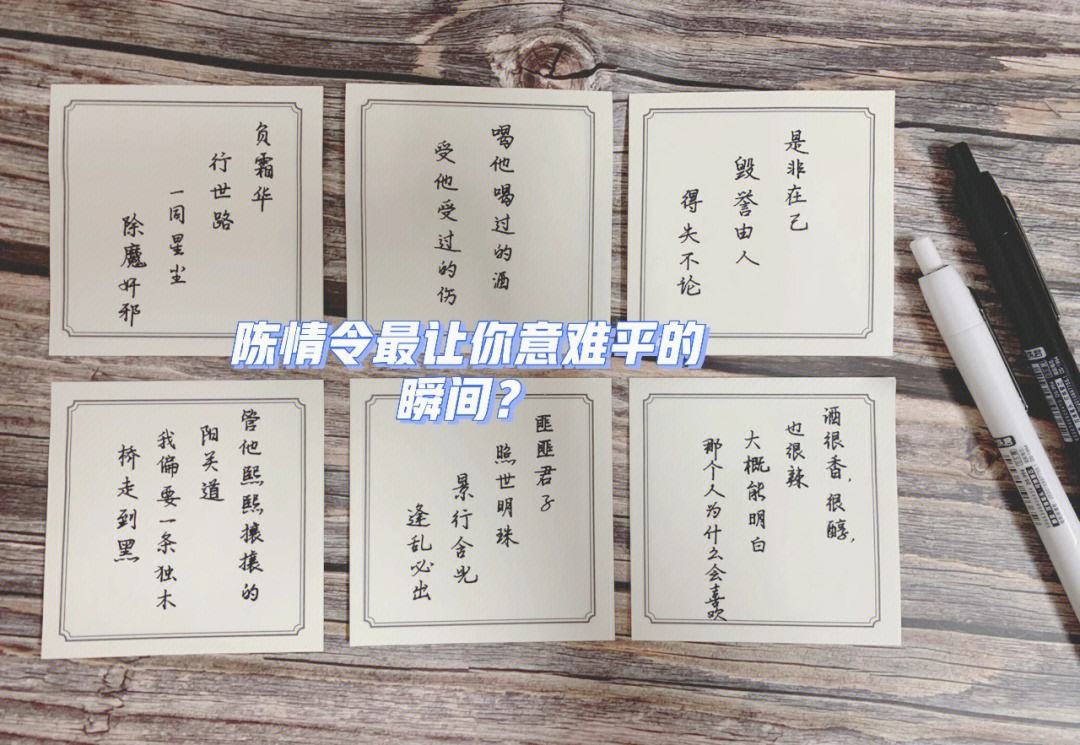 负霜华
行世路
一同星尘
除魔奸邪
喝他喝过的酒
受他受过的伤
是非在己
毁誉由人
得失不论
陈情令最让你意难平的
瞬间？
管他熙熙攘攘的
阳关道
我偏要一条独木
桥走到黑
匪匪君子
照世明珠
景行含光
逢乱必出
酒很香，很醇，
也很辣
大概能明白
那个人为什么会喜欢